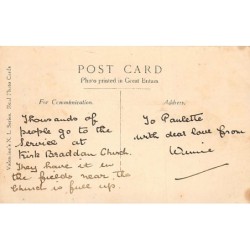 POST CARD
Photo printed in Great Britain
For Communication.
Address.
Thousands of
people go to the
Service at
Kirk Braddan Church.
They have it in
the fields near the
Church is full up.
To Paulette
with dear love from
Winnie
Valentine's X. L. Series. Real Photo Cards